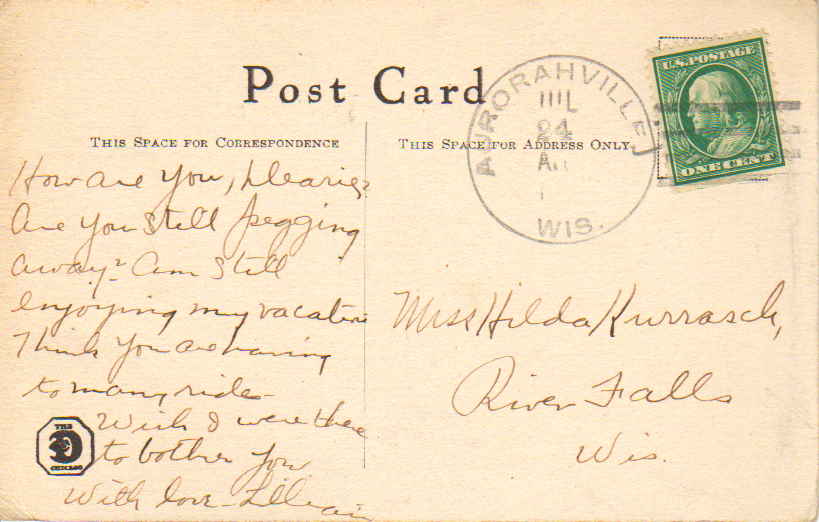 Post Card
THIS SPACE FOR CORRESPONDENCE
THIS SPACE FOR ADDRESS ONLY.
AURORAHVILLE
JUL
24
A
WIS.
U.S. POSTAGE
ONE CENT
How are you, Dearie?
Are you still pegging
away? Am still
enjoying my vacation
Think you are having
to many rides
Wish I were there
to bother you
With love - Lillian
THE
CHICAGO
Miss Hilda Kurrasch,
River Falls
Wis.